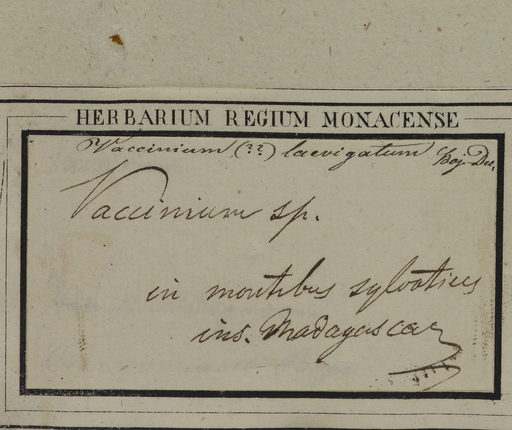 HERBARIUM REGIUM MONACENSE
Vaccinium (??) laevigatum Boj. Dec.
Vaccinium sp.
in montibus sylvaticis
ins. Madagascar